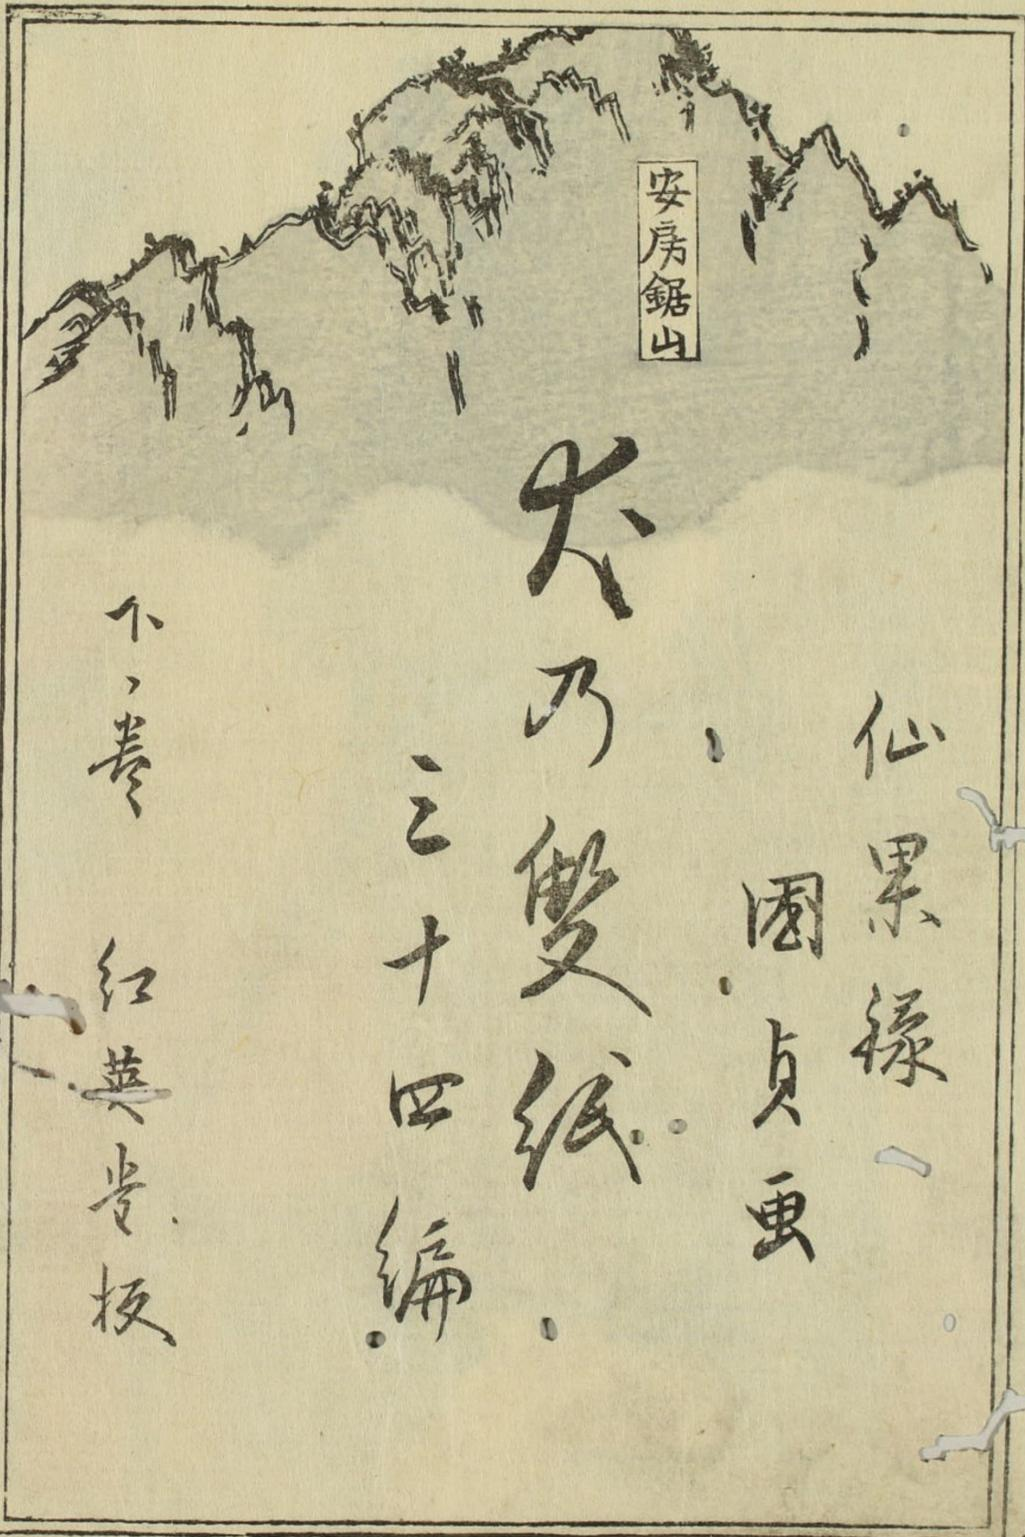 安房鋸山
仙果録
國貞画
犬乃雙紙
三十四編
下之巻
紅英堂板